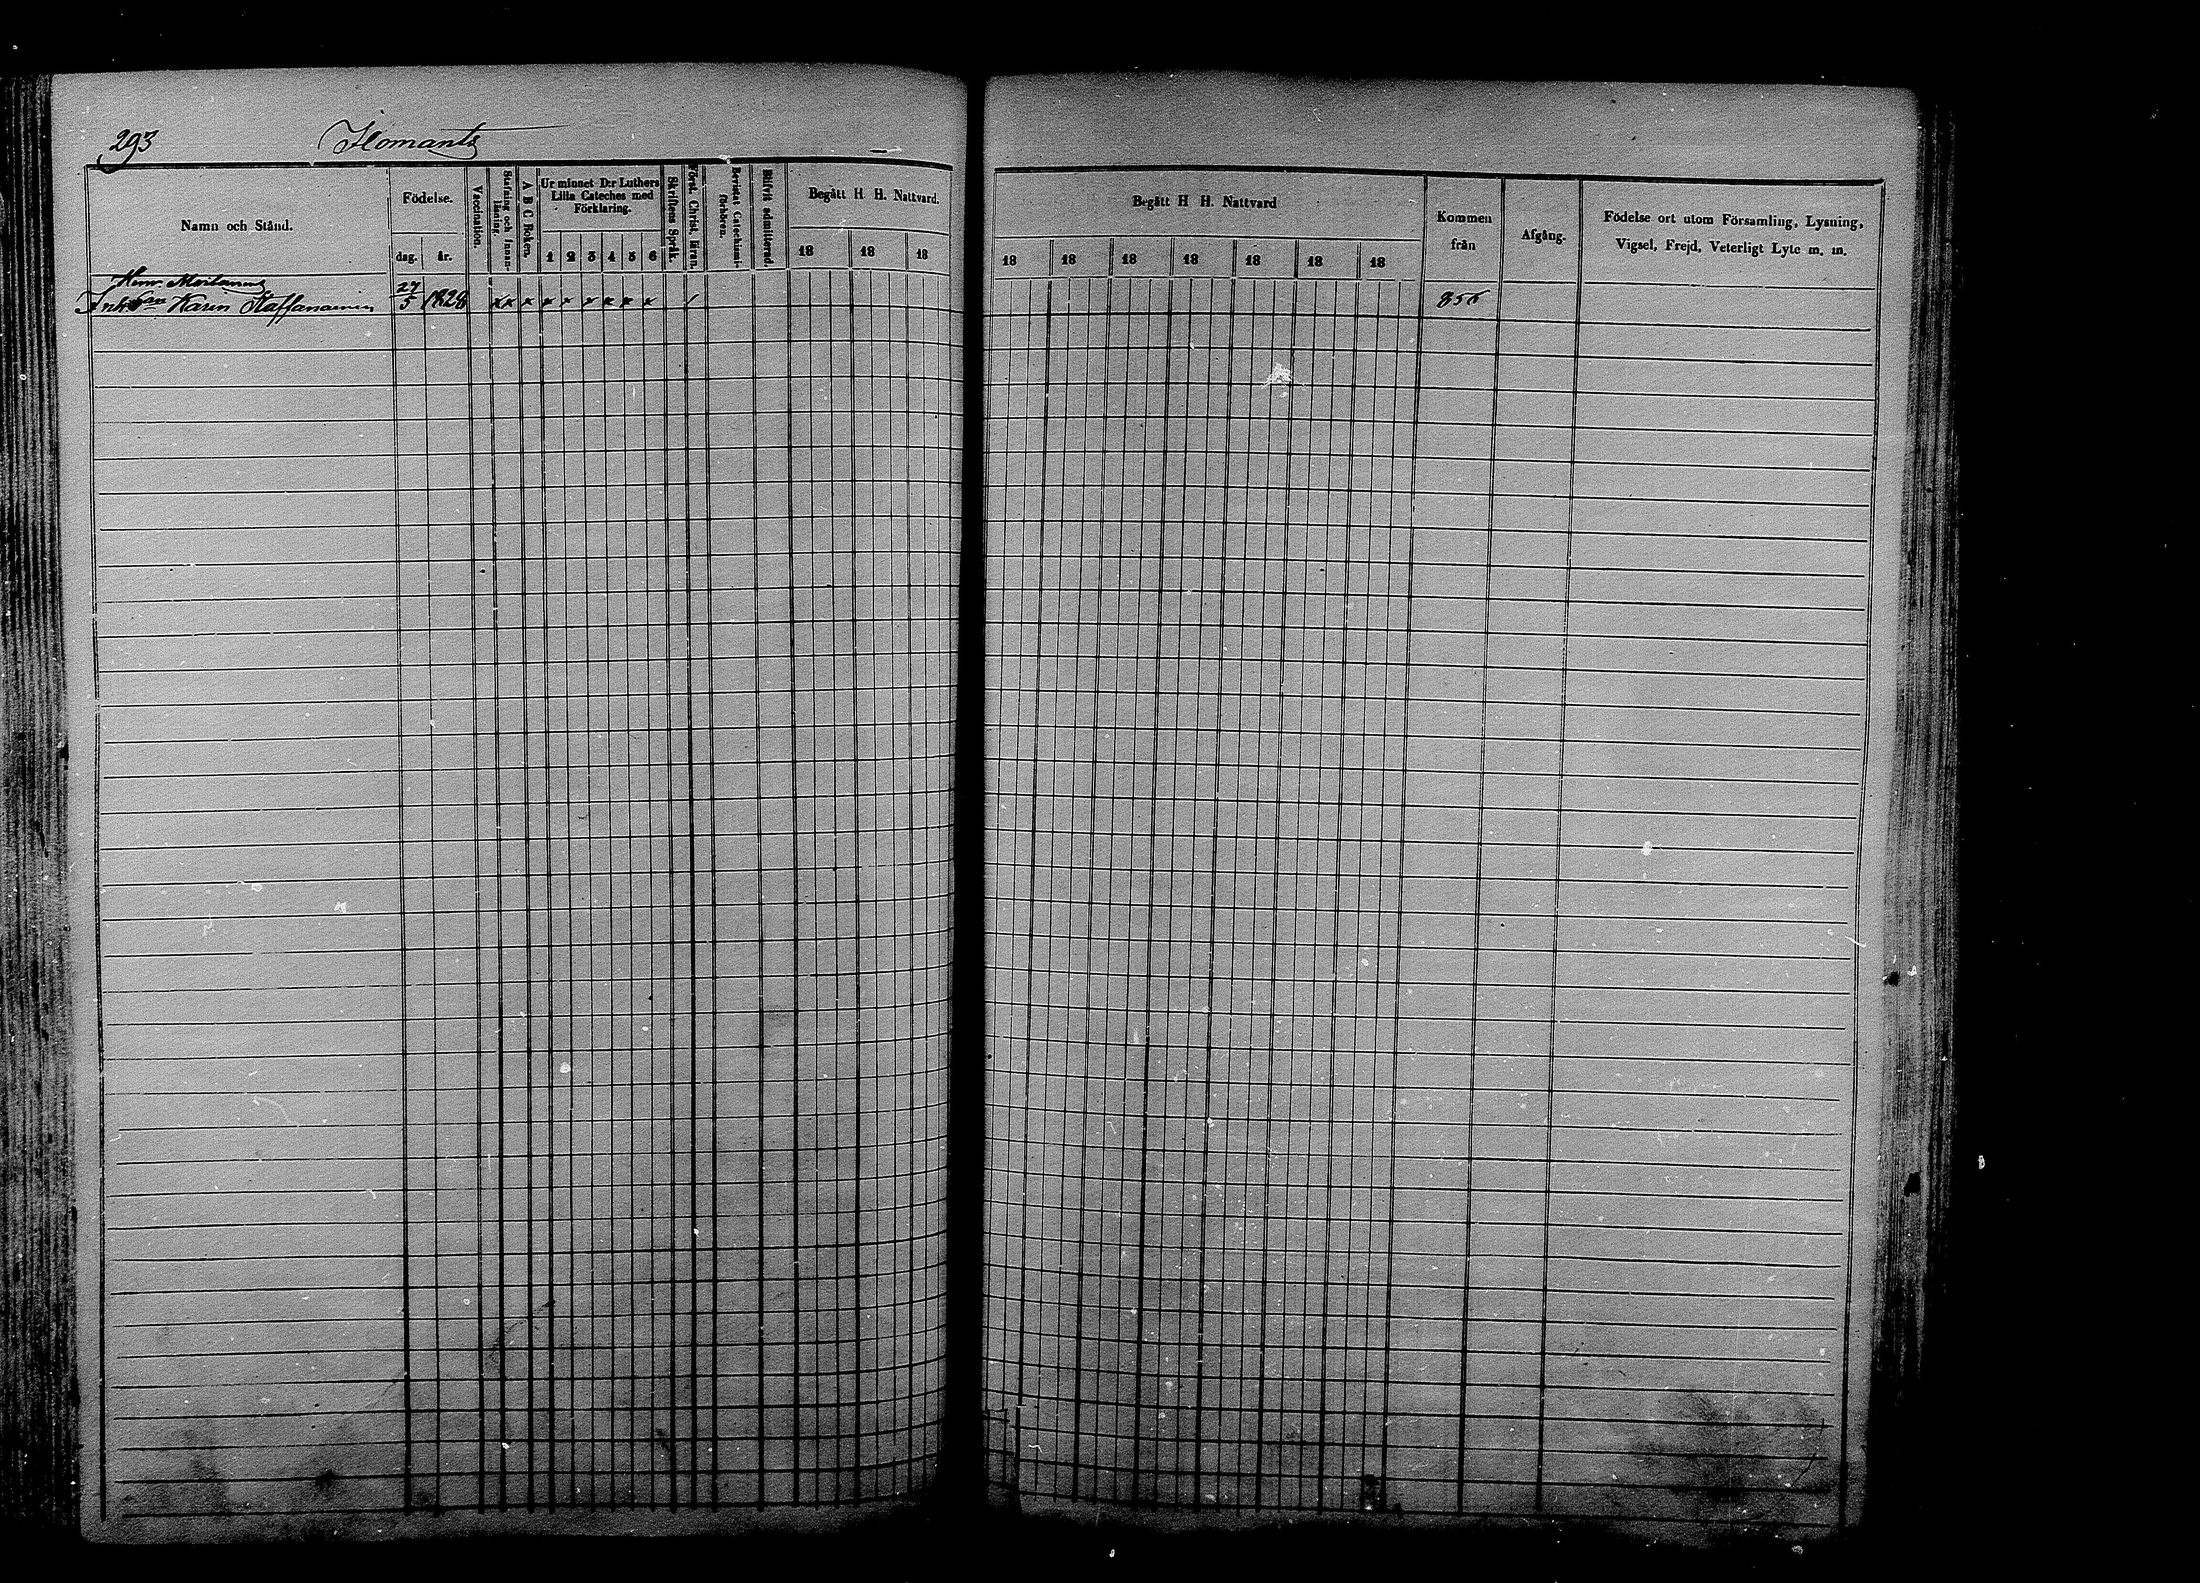 293 Ilomants
Namn och Stånd.
Födelse.
dag. år.
Vaccination.
Stafning och Innan-
läsning.
A B C Boken.
Ur minnet D:r Luthers
Lilla Cateches med
Förklaring.
1 2 3 4 5 6
Skriftens Språk.
Först. Christ. läran.
Bevistat Catechismi-
förhören.
Blifvit admitterad.
Begått H H. Nattvard.
18 18 18
Begått H H. Nattvard
18 18 18 18 18 18 18
Kommen
från
Afgång.
Födelse ort utom Församling, Lysning,
Vigsel, Frejd, Veterligt Lyte m. m.
Karin Staffanainen 27/5 1828 x x x x x x x x x / 856